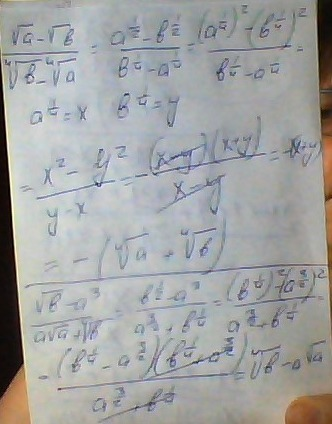 (√a - √b)/(⁴√b - ⁴√a) = (a^(1/2) - b^(1/2))/(b^(1/4) - a^(1/4)) = ((a^(1/4))² - (b^(1/4))²)/(b^(1/4) - a^(1/4)) =
a^(1/4) = x b^(1/4) = y
= (x² - y²)/(y - x) = -((x - y)(x + y))/(x - y) = -(x+y)
= -(⁴√a + ⁴√b)
(√b - a³)/(a√a + ⁴√b) = (b^(1/2) - a³)/(a^(3/2) + b^(1/4)) = ((b^(1/4))² - (a^(3/2))²)/(a^(3/2) + b^(1/4)) =
= ((b^(1/4) - a^(3/2))(b^(1/4) + a^(3/2)))/(a^(3/2) + b^(1/4)) = ⁴√b - a√a